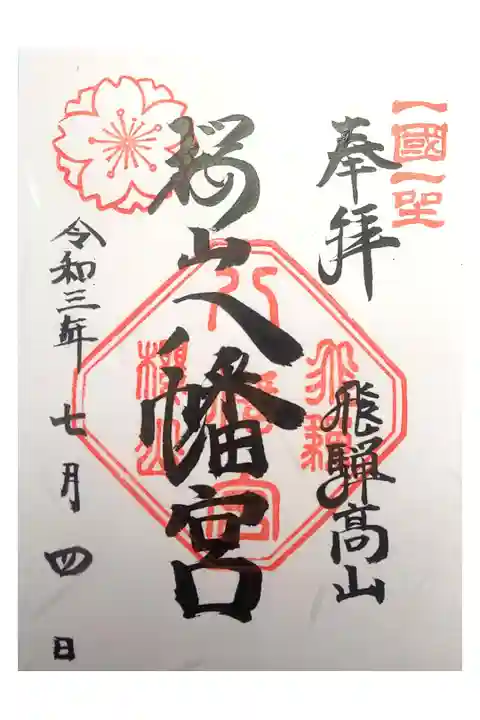 一國一社
奉拝
飛騨高山
桜山八幡宮
飛騨
八幡宮
櫻山
令和三年七月四日